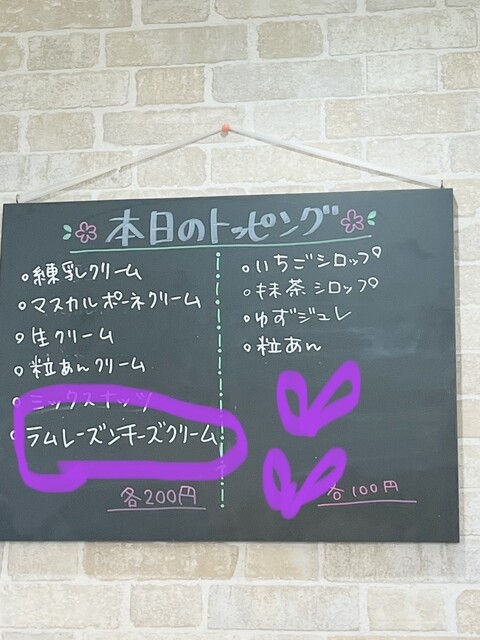 本日のトッピング
○練乳クリーム
○マスカルポーネクリーム
○生クリーム
○粒あんクリーム
○ミックスナッツ
○ラムレーズンチーズクリーム
各200円
○いちごシロップ
○抹茶シロップ
○ゆずジュレ
○粒あん
各100円